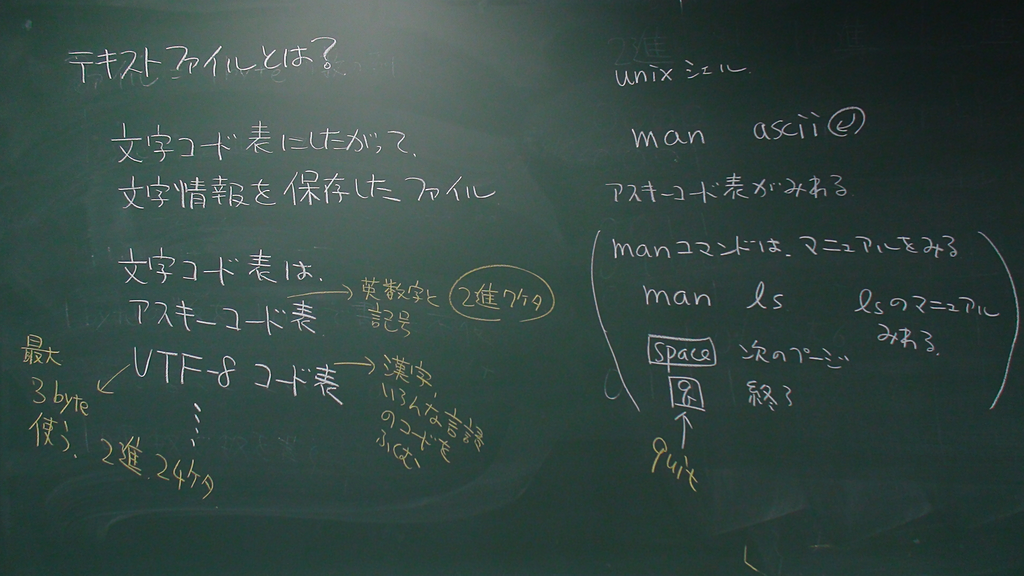 テキストファイルとは?
文字コード表にしたがって、
文字情報を保存したファイル
文字コード表は、
アスキーコード表
英数字と
記号
2進7ケタ
UTF-8 コード表
漢字、
いろんな言語
のコードを
ふくむ
最大
3byte
使う、
2進、24ケタ
unix シェル
man ascii
アスキーコード表がみれる
manコマンドは、マニュアルをみる
man ls
lsのマニュアル
みれる
space 次のページ
q 終了
quit